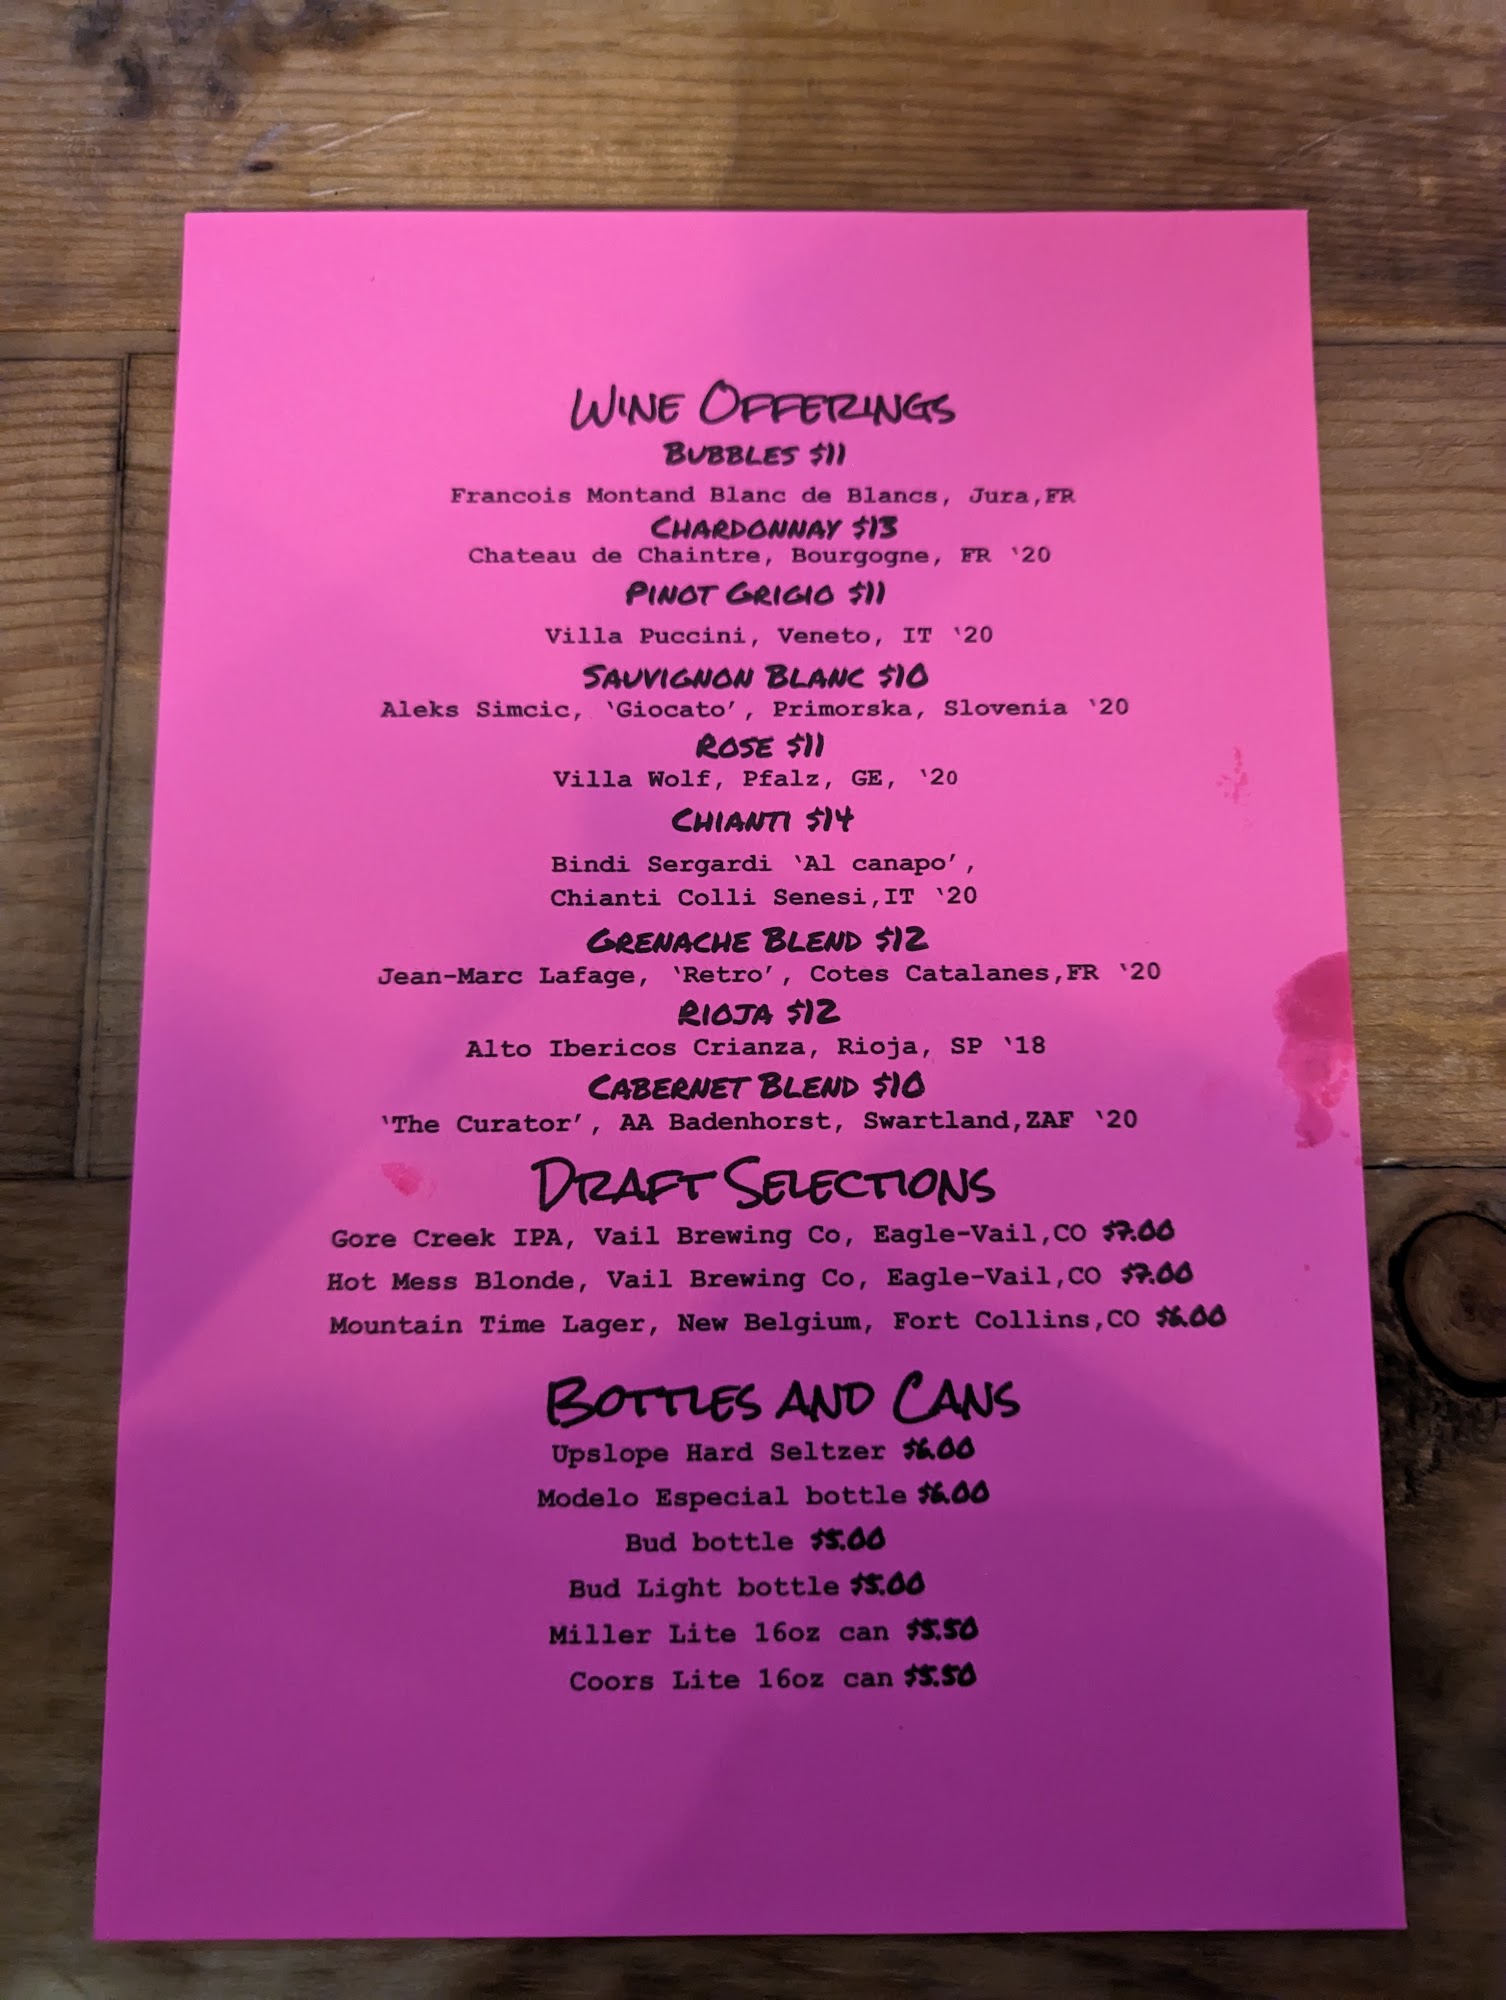 Wine Offerings
Bubbles $11
Francois Montand Blanc de Blancs, Jura,FR
Chardonnay $13
Chateau de Chaintre, Bourgogne, FR ‛20
Pinot Grigio $11
Villa Puccini, Veneto, IT ‛20
Sauvignon Blanc $10
Aleks Simcic, ‛Giocato’, Primorska, Slovenia ‛20
Rose $11
Villa Wolf, Pfalz, GE, ‛20
Chianti $14
Bindi Sergardi ‛Al canapo’,
Chianti Colli Senesi,IT ‛20
Grenache Blend $12
Jean-Marc Lafage, ‛Retro’, Cotes Catalanes,FR ‛20
Rioja $12
Alto Ibericos Crianza, Rioja, SP ‛18
Cabernet Blend $10
‛The Curator’, AA Badenhorst, Swartland,ZAF ‛20
Draft Selections
Gore Creek IPA, Vail Brewing Co, Eagle-Vail,CO $7.00
Hot Mess Blonde, Vail Brewing Co, Eagle-Vail,CO $7.00
Mountain Time Lager, New Belgium, Fort Collins,CO $6.00
Bottles and Cans
Upslope Hard Seltzer $6.00
Modelo Especial bottle $6.00
Bud bottle $5.00
Bud Light bottle $5.00
Miller Lite 16oz can $5.50
Coors Lite 16oz can $5.50